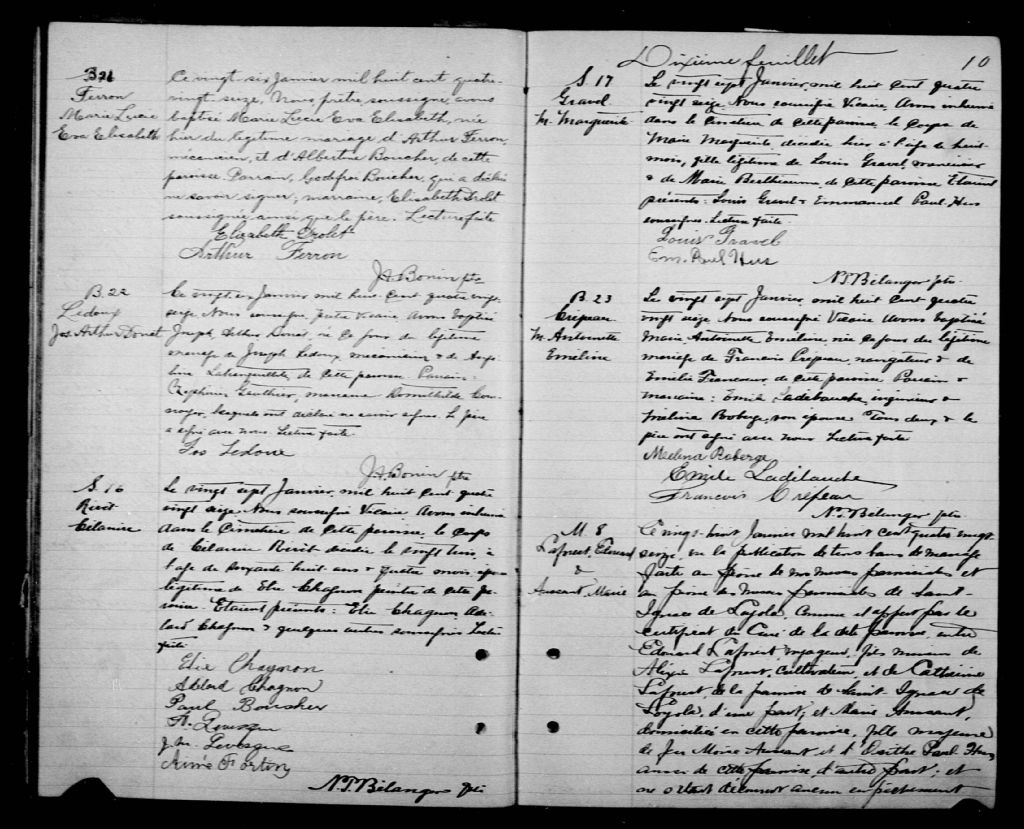 B 21
Ferron
Marie Lucie
Eva Elisabeth
Ce vingt six Janvier mil huit cent quatre-
vingt-seize, Nous prêtre, soussigné, avons
baptisé Marie Lucie Eva Elisabeth, née
hier du légitime mariage d'Arthur Ferron,
mécanicien, et d'Albertine Boucher, de cette
paroisse Parrain, Godfroi Boucher, qui a déclaré
ne savoir signer; marraine, Elisabeth Drolet
soussignée ainsi que le père. Lecture faite
Elizabeth Drolet
Arthur Ferron
J.A. Bonin ptre
B. 22
Ledoux
Jos Arthur Donat
Ce vingt six Janvier mil huit cent quatre vingt
seize. Nous soussigné prêtre Vicaire Avons baptisé
Joseph Arthur Donat, né ce jour du légitime
mariage de Joseph Ledoux mécanicien & de
de cette paroisse Parrain:
Gauthier, marraine
lesquels ont déclaré ne savoir signer. Le père
a signé avec nous Lecture faite
Jos Ledoux
J.A. Bonin ptre
S. 16
Riret
Célanire
Le vingt sept Janvier, mil huit cent quatre
vingt seize Nous soussigné Vicaire Avons inhumé
dans le Cimetière de cette paroisse, le corps
de Célanire Riret décédée le vingt trois, à
l'age de soixante huit ans & quatre mois, épouse
légitime de Elie Chagnon peintre de cette pa-
roisse. Etaient présents: Elie Chagnon Ade-
lard Chagnon & quelques autres soussignés Lecture
faite
Elie Chagnon
Adelard Chagnon
Paul Boucher
J.M. Levesque
Aimé Fortin
N.T. Bélanger ptre
Dixième feuillet
10
S 17
Gravel
M. Marguerite
Le vingt sept Janvier, mil huit cent quatre
vingt seize. Nous soussigné Vicaire, Avons inhumé
dans le Cimetière de cette paroisse, le corps de
Marie Marguerite, décédée hier à l'age de huit
mois, fille légitime de Louis Gravel
& de Marie Berthiaume, de cette paroisse Etaient
présents: Louis Gravel & Emmanuel Paul-Hus
soussignés. Lecture faite.
Louis Gravel
Em. Paul Hus
N.T. Bélanger ptre
B 23
Crépeau
M. Antoinette
Emeline
Le vingt sept Janvier, mil huit cent quatre
vingt seize. Nous soussigné Vicaire Avons baptisé
Marie Antoinette Emeline, née ce jour du légitime
mariage de Francois Crépeau, navigateur & de
Emélie Francoeur, de cette paroisse, Parrain &
marraine: Emile Ladébauche, ingénieur &
Roberge, son épouse Tous deux & le
père ont signé avec nous Lecture faite
Medena Roberge
Emile Ladébauche
Francois Crépeau
N.T. Bélanger ptre
M. 8
Lafrest, Edouard
&
Aussant Marie
Ce vingt-huit Janvier mil huit cent quatre vingt-
seize, vu la publication de trois bans de mariage
faite au prône de nos messes paroissiales et
au prône des messes paroissiales de Saint-
Ignace de Loyola, Comme il appert par le
certificat du Curé de la dite paroisse, entre
Edouard Lafrest voyageur, fils mineur de
Lafrest, cultivateur, et de Catherine
Lafrest de la paroisse de Saint Ignace de
Loyola, d'une part, et Marie Aussant,
domiciliée en cette paroisse, fille majeure
de feu Moise Aussant et d'Esuthe Paul Hus
aussi de cette paroisse d'autre part; et
ne s'étant découvert aucun empêchement